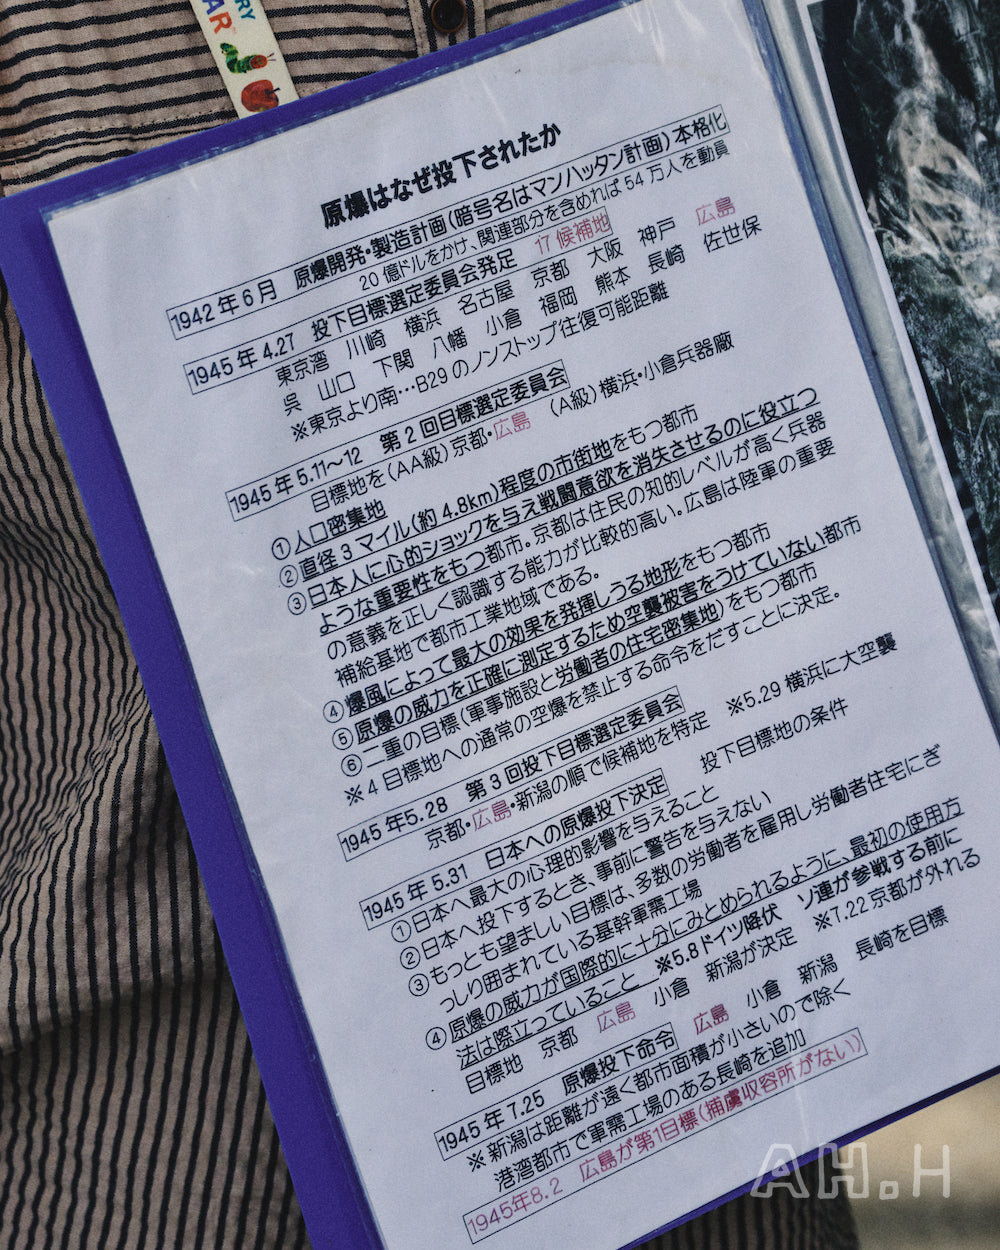 RY
AR
原爆はなぜ投下されたか
1942年6月 原爆開発・製造計画(暗号名はマンハッタン計画)本格化
20億ドルをかけ、関連部分を含めれば54万人を動員
1945年4.27 投下目標選定委員会発足 17候補地
東京湾 川崎 横浜 名古屋 京都 大阪 神戸 広島
呉 山口 下関 八幡 小倉 福岡 熊本 長崎 佐世保
※東京より南…B29のノンストップ往復可能距離
1945年5.11〜12 第2回目標選定委員会
目標地を(AA級)京都・広島 (A級)横浜・小倉兵器廠
①人口密集地
②直径3マイル(約4.8km)程度の市街地をもつ都市
③日本人に心的ショックを与え戦闘意欲を消失させるのに役立つ
ような重要性をもつ都市。京都は住民の知的レベルが高く兵器
の意義を正しく認識する能力が比較的高い。広島は陸軍の重要
補給基地で都市工業地域である。
④爆風によって最大の効果を発揮しうる地形をもつ都市
⑤原爆の威力を正確に測定するため空襲被害をうけていない都市
⑥二重の目標(軍事施設と労働者の住宅密集地)をもつ都市
※4目標地への通常の空爆を禁止する命令をだすことに決定。
1945年5.28 第3回投下目標選定委員会
京都・広島・新潟の順で候補地を特定 ※5.29横浜に大空襲
1945年5.31 日本への原爆投下決定 投下目標地の条件
①日本へ最大の心理的影響を与えること
②日本へ投下するとき、事前に警告を与えない
③もっとも望ましい目標は、多数の労働者を雇用し労働者住宅にぎ
っしり囲まれている基幹軍需工場
④原爆の威力が国際的に十分にみとめられるように、最初の使用方
法は際立っていること ※5.8ドイツ降伏 ソ連が参戦する前に
目標地 京都 広島 小倉 新潟が決定 ※7.22京都が外れる
1945年7.25 原爆投下命令 広島 小倉 新潟 長崎を目標
※新潟は距離が遠く都市面積が小さいので除く
港湾都市で軍需工場のある長崎を追加
1945年8.2 広島が第1目標(捕虜収容所がない)
AH.H